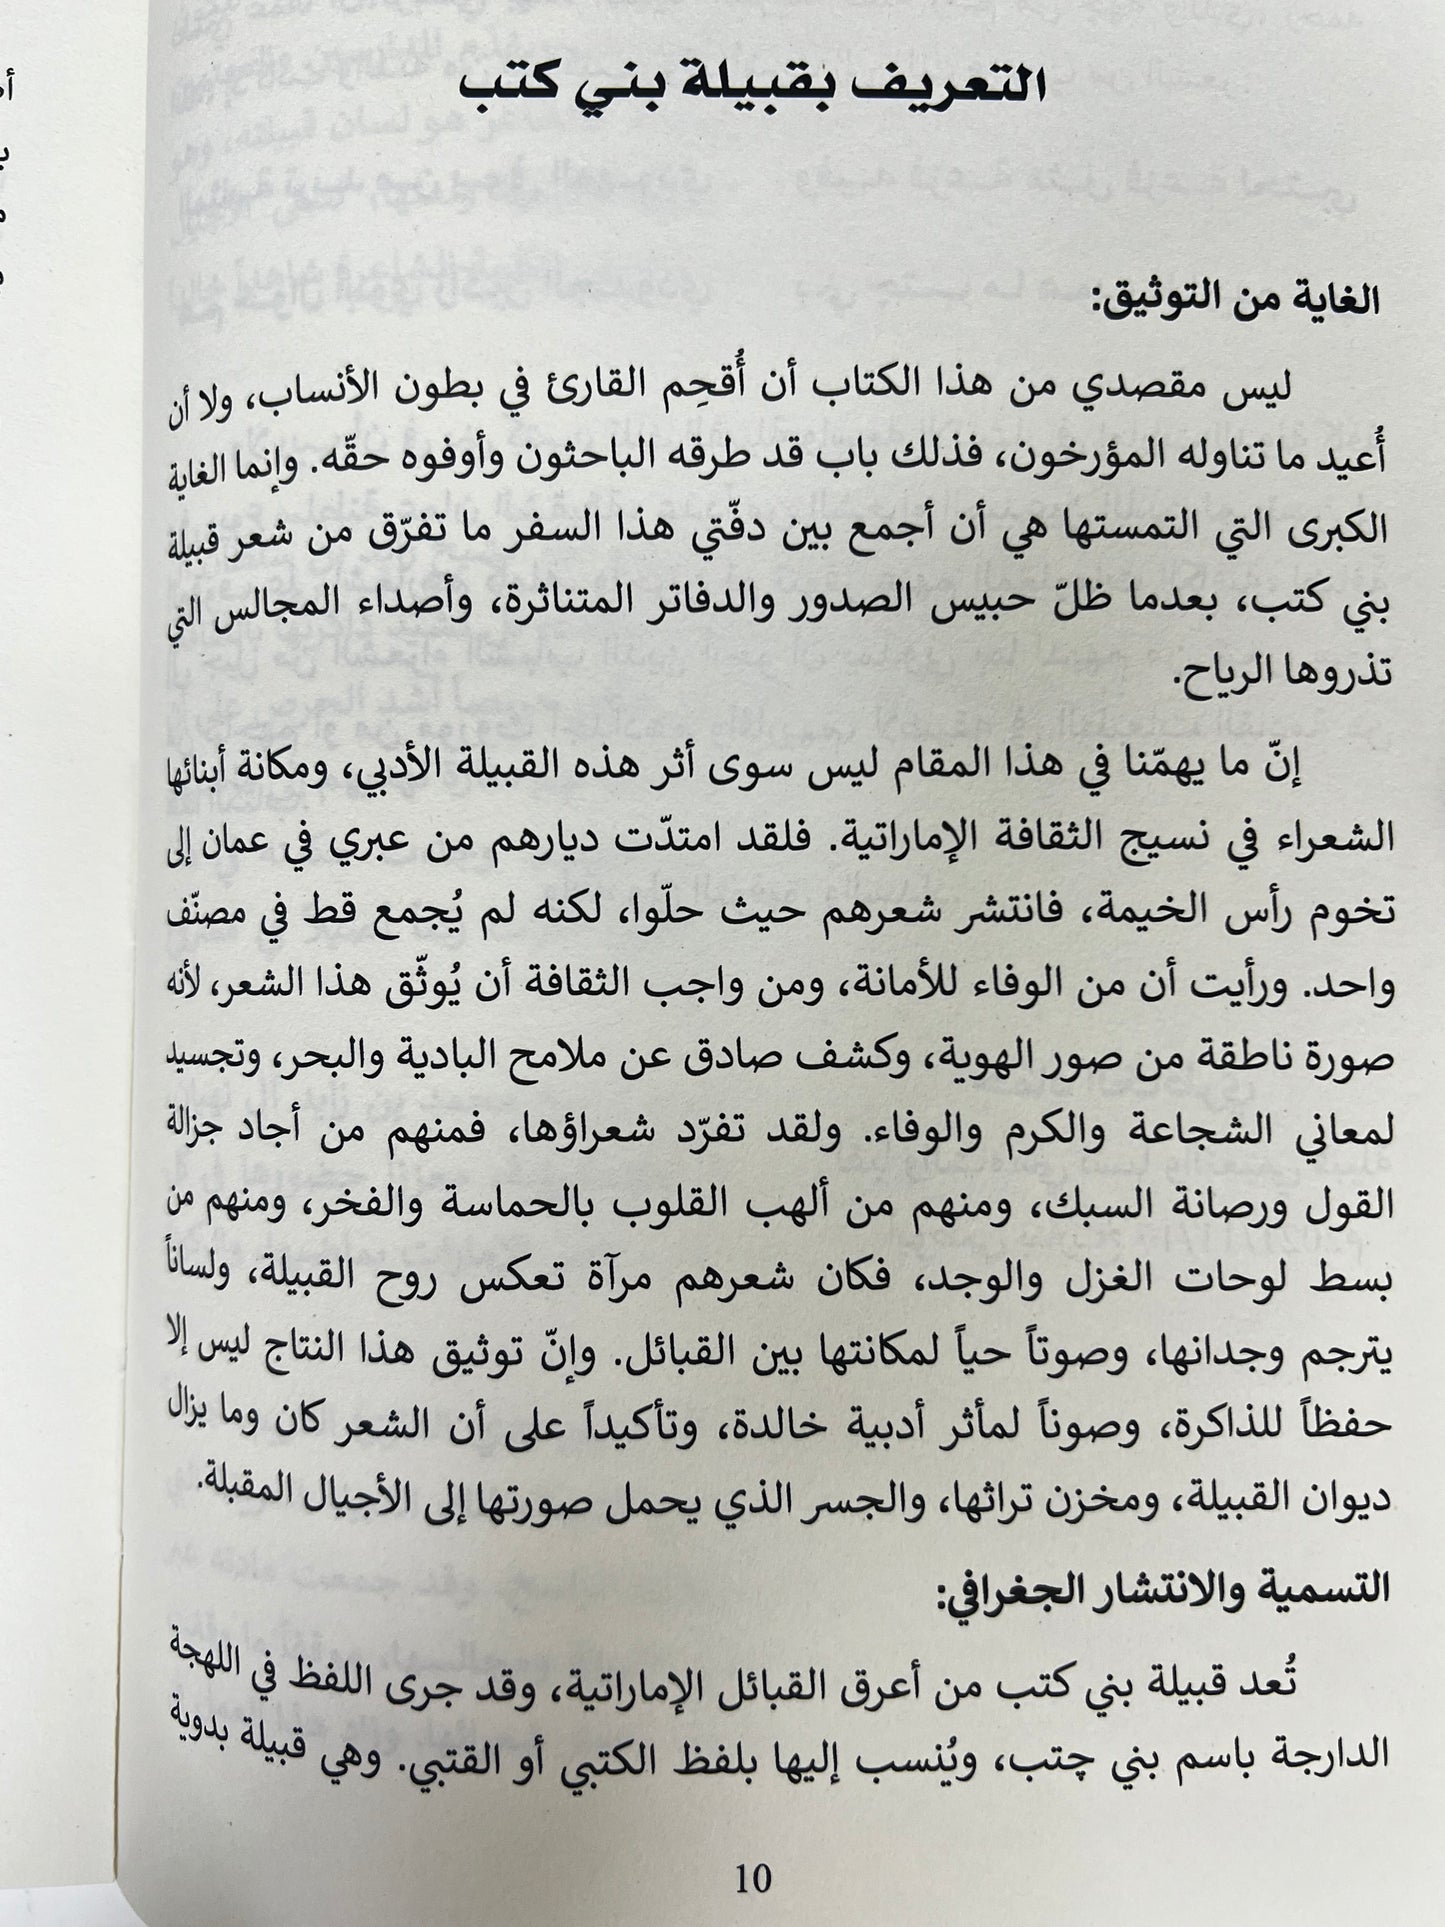 التعريف بقبيلة بني كتب
الغاية من التوثيق:
ليس مقصدي من هذا الكتاب أن أُقحِم القارئ في بطون الأنساب، ولا أن
أُعيد ما تناوله المؤرخون، فذلك باب قد طرقه الباحثون وأوفوه حقّه. وإنما الغاية
الكبرى التي التمستها هي أن أجمع بين دفّتي هذا السفر ما تفرّق من شعر قبيلة
بني كتب، بعدما ظلّ حبيس الصدور والدفاتر المتناثرة، وأصداء المجالس التي
تذروها الرياح.
إنّ ما يهمّنا في هذا المقام ليس سوى أثر هذه القبيلة الأدبي، ومكانة أبنائها
الشعراء في نسيج الثقافة الإماراتية. فلقد امتدّت ديارهم من عبري في عمان إلى
تخوم رأس الخيمة، فانتشر شعرهم حيث حلّوا، لكنه لم يُجمع قط في مصنّف
واحد. ورأيت أن من الوفاء للأمانة، ومن واجب الثقافة أن يُوثّق هذا الشعر، لأنه
صورة ناطقة من صور الهوية، وكشف صادق عن ملامح البادية والبحر، وتجسيد
لمعاني الشجاعة والكرم والوفاء. ولقد تفرّد شعراؤها، فمنهم من أجاد جزالة
القول ورصانة السبك، ومنهم من ألهب القلوب بالحماسة والفخر، ومنهم من
بسط لوحات الغزل والوجد، فكان شعرهم مرآة تعكس روح القبيلة، ولساناً
يترجم وجدانها، وصوتاً حياً لمكانتها بين القبائل. وإنّ توثيق هذا النتاج ليس إلا
حفظاً للذاكرة، وصوناً لمأثر أدبية خالدة، وتأكيداً على أن الشعر كان وما يزال
ديوان القبيلة، ومخزن تراثها، والجسر الذي يحمل صورتها إلى الأجيال المقبلة.
التسمية والانتشار الجغرافي:
تُعد قبيلة بني كتب من أعرق القبائل الإماراتية، وقد جرى اللفظ في اللهجة
الدارجة باسم بني چتب، ويُنسب إليها بلفظ الكتبي أو القتبي. وهي قبيلة بدوية
10